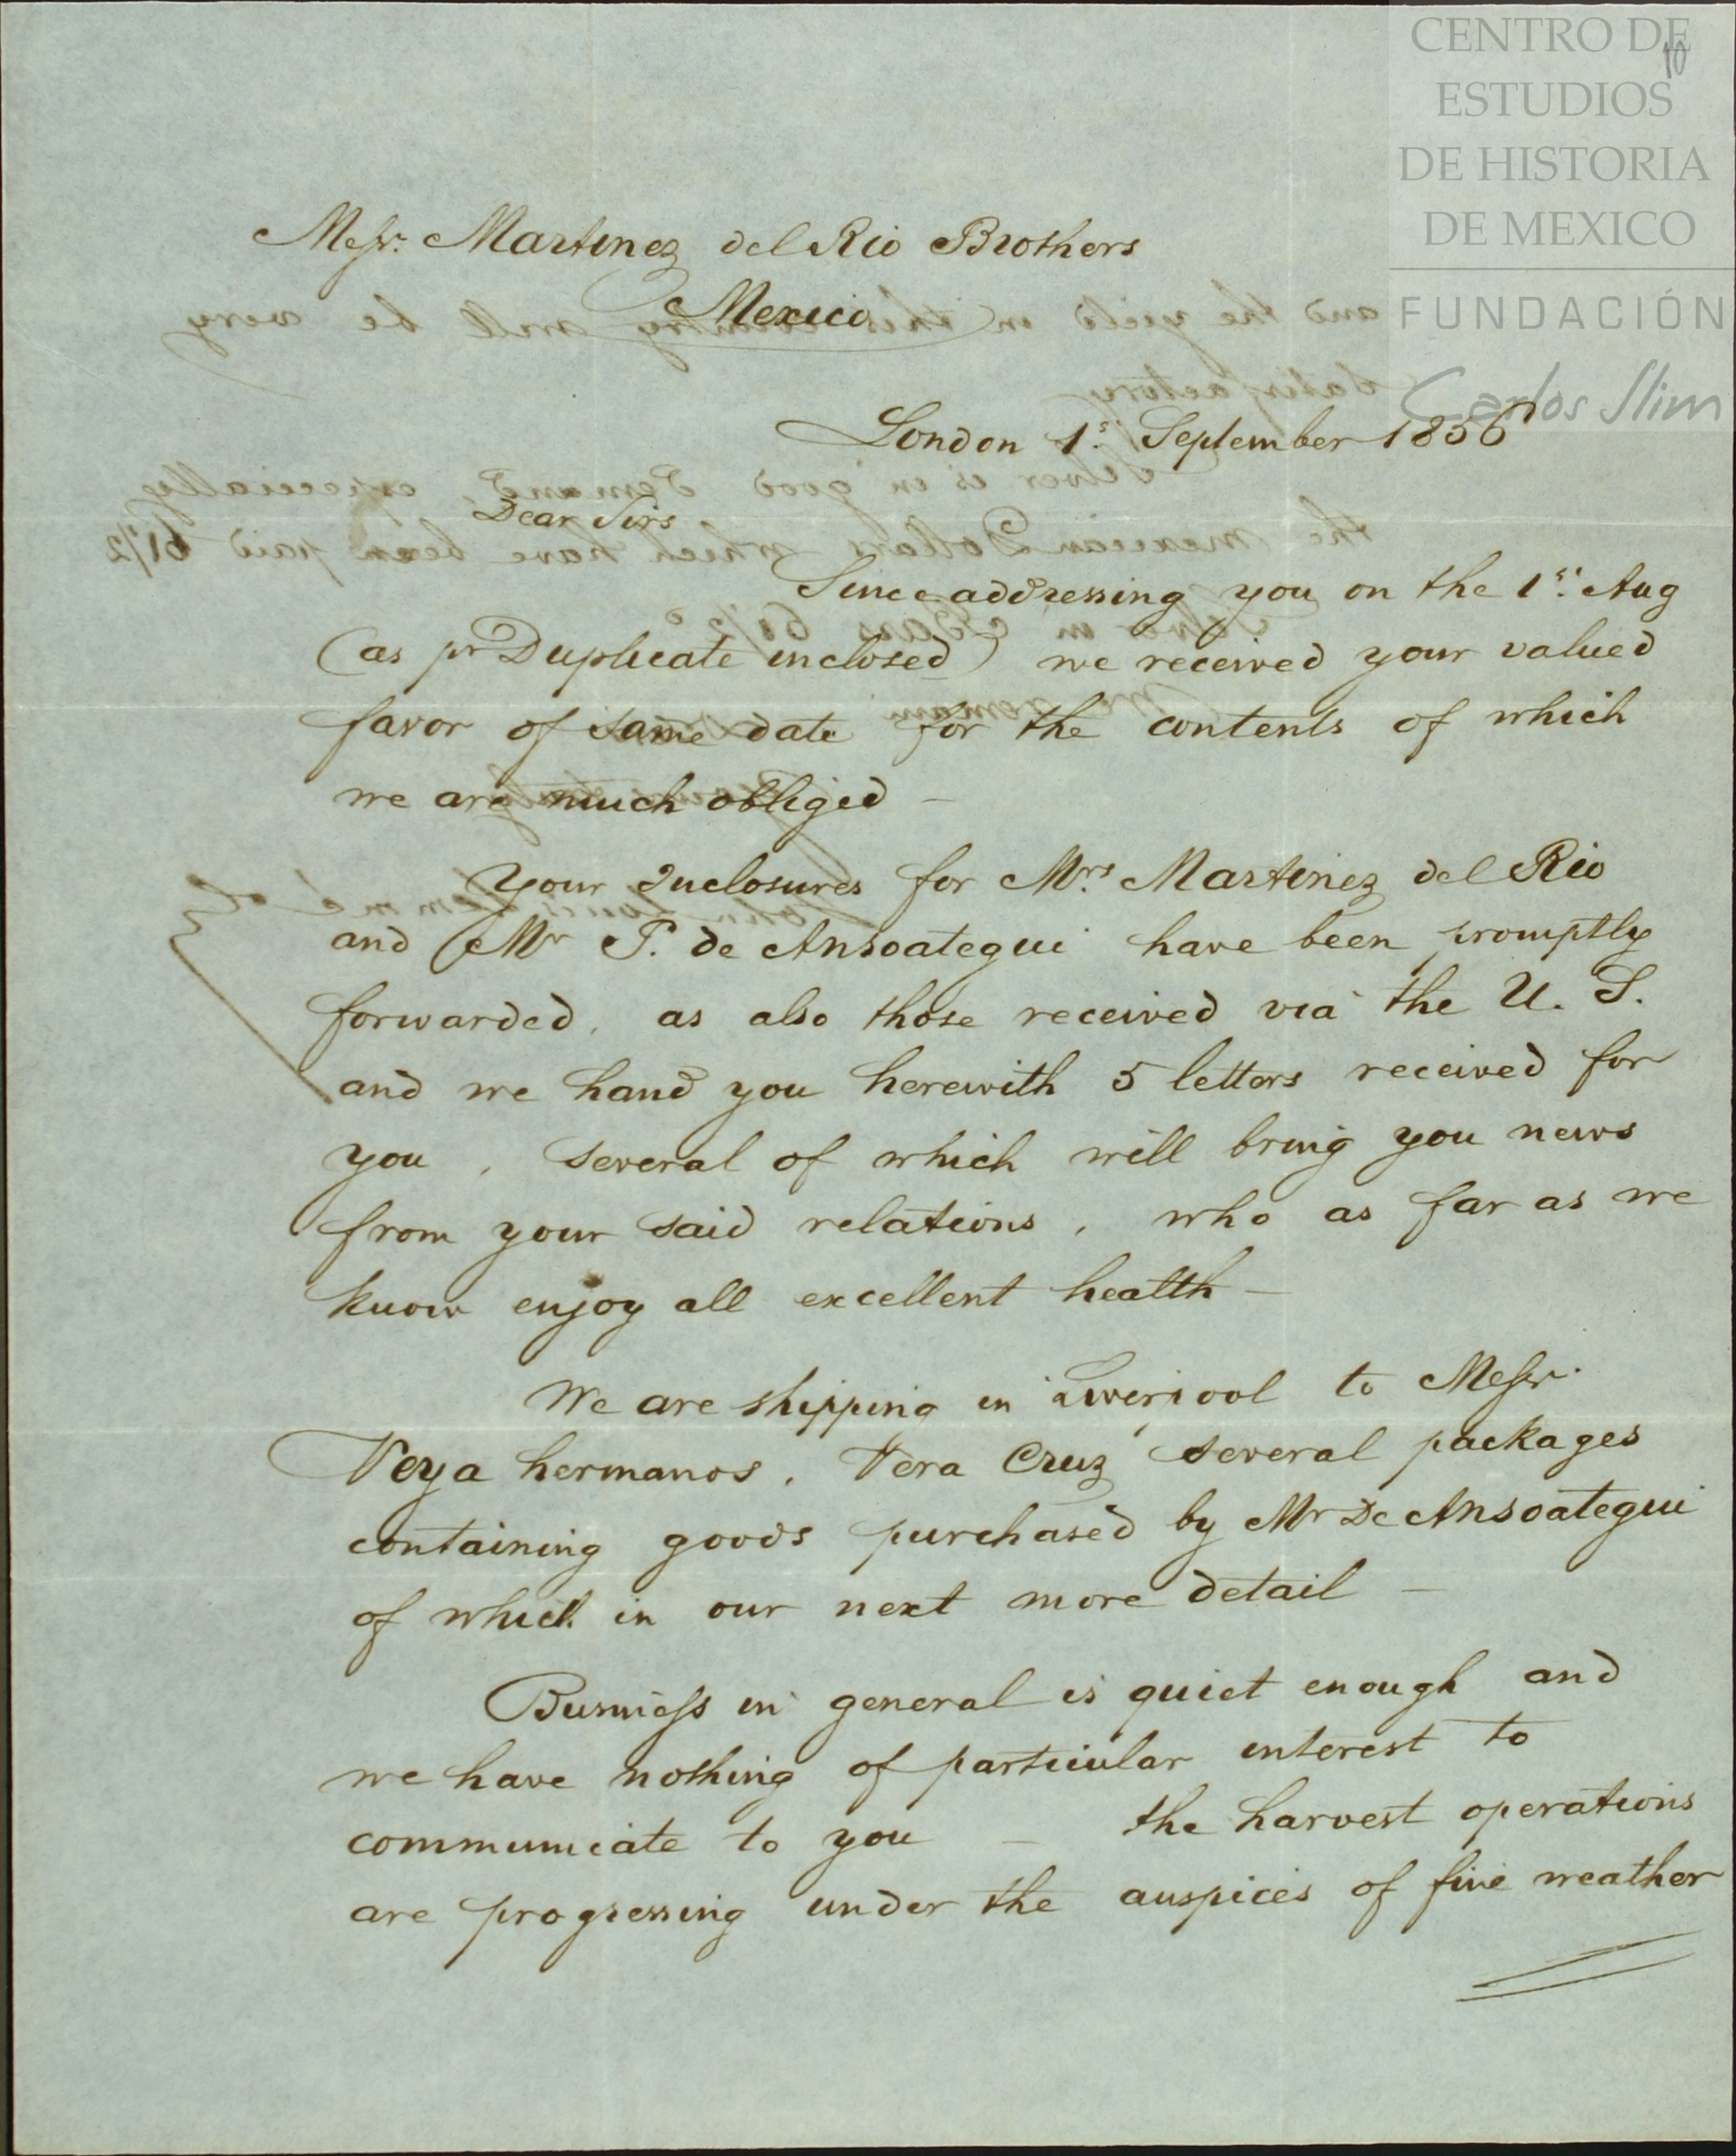 CENTRO DE
ESTUDIOS
DE HISTORIA
DE MEXICO
FUNDACIÓN
Carlos Slim
10
Messr. Martinez del Rio Brothers
Mexico
London 1st September 1856
Dear Sirs
Since addressing you on the 1st Aug
(as pr Duplicate inclosed) we received your valued
favor of same date for the contents of which
we are much obliged —
Your Inclosures for Mrs Martinez del Rio
and Mr P. de Ansoategui have been promptly
forwarded, as also those received via the U. S.
and we hand you herewith 5 letters received for
you, several of which will bring you news
from your said relations, who as far as we
know enjoy all excellent health —
We are shipping in Liverpool to Messr.
Veya hermanos, Vera Cruz several packages
containing goods purchased by Mr De Ansoategui
of which in our next more detail —
Business in general is quiet enough and
we have nothing of particular interest to
communicate to you — the harvest operations
are progressing under the auspices of fine weather